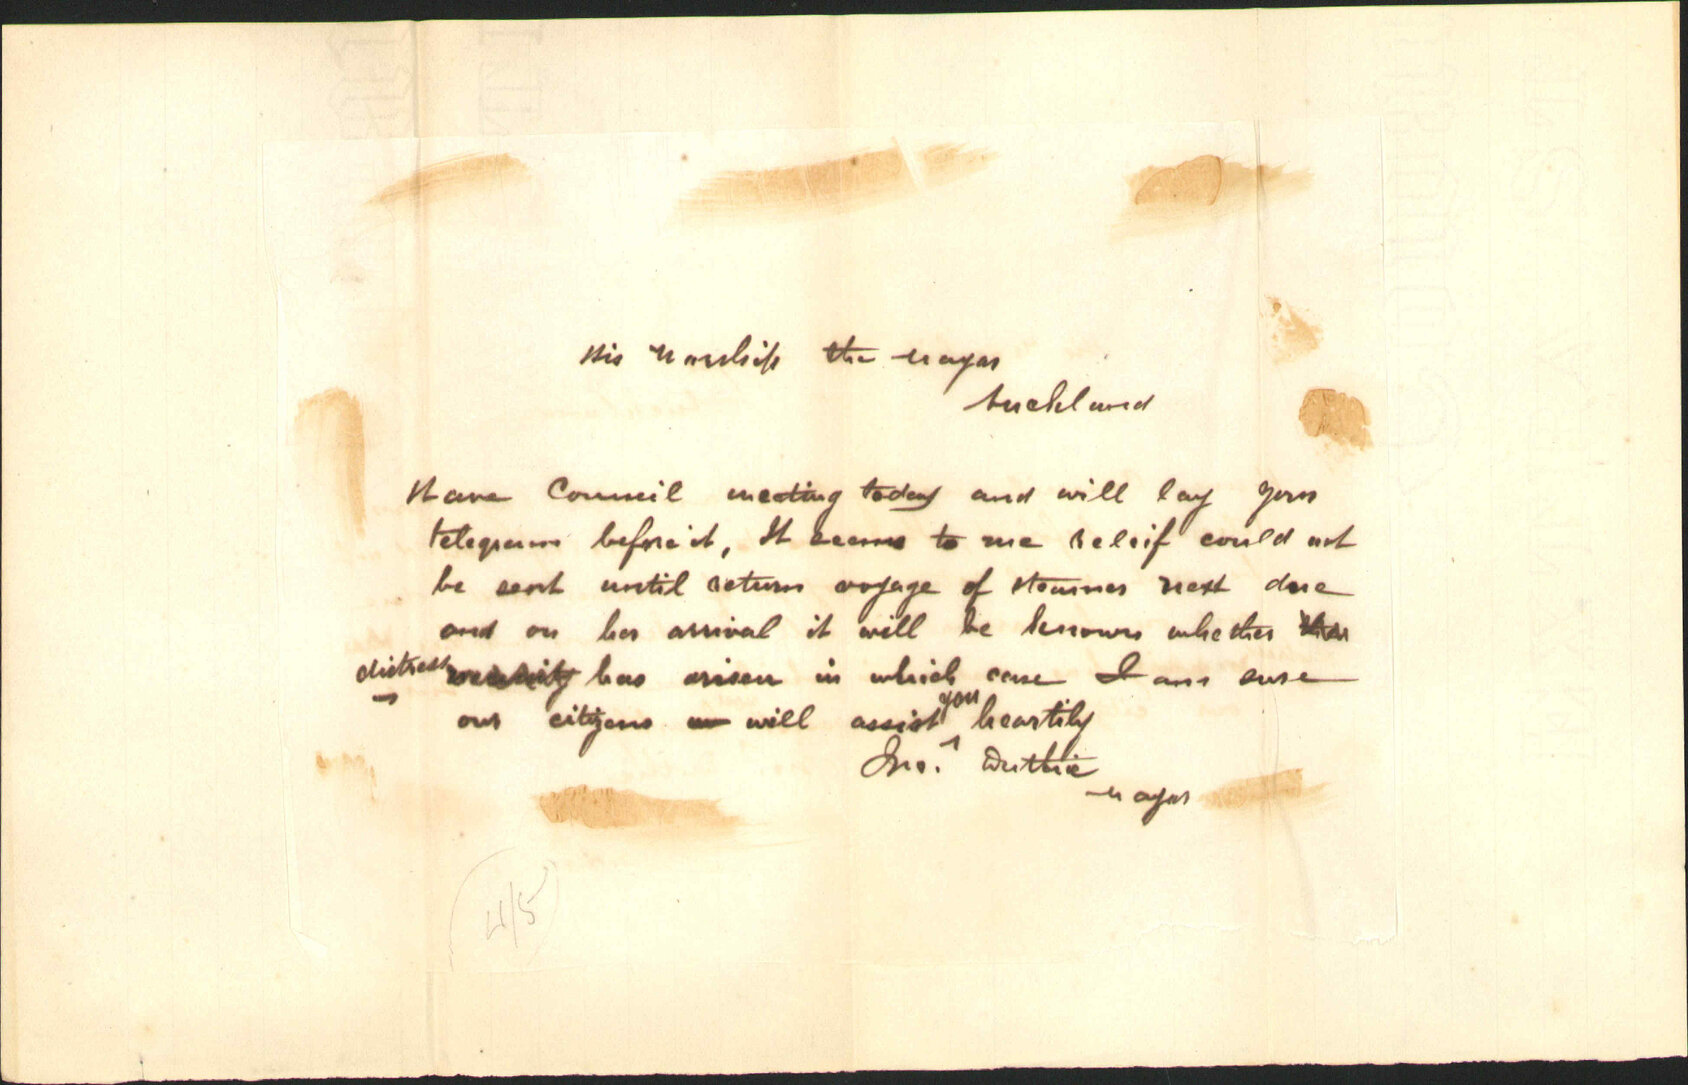 His Worship the Mayor
Auckland
Have Council meeting today and will lay your
telegram before it, It seems to me releif could not
be sent until return voyage of steamer next due
and on her arrival it will be known whether
distress has arisen in which case I am sure
our citizens will assist you heartily
Jno. Duthie
Mayor
4/5